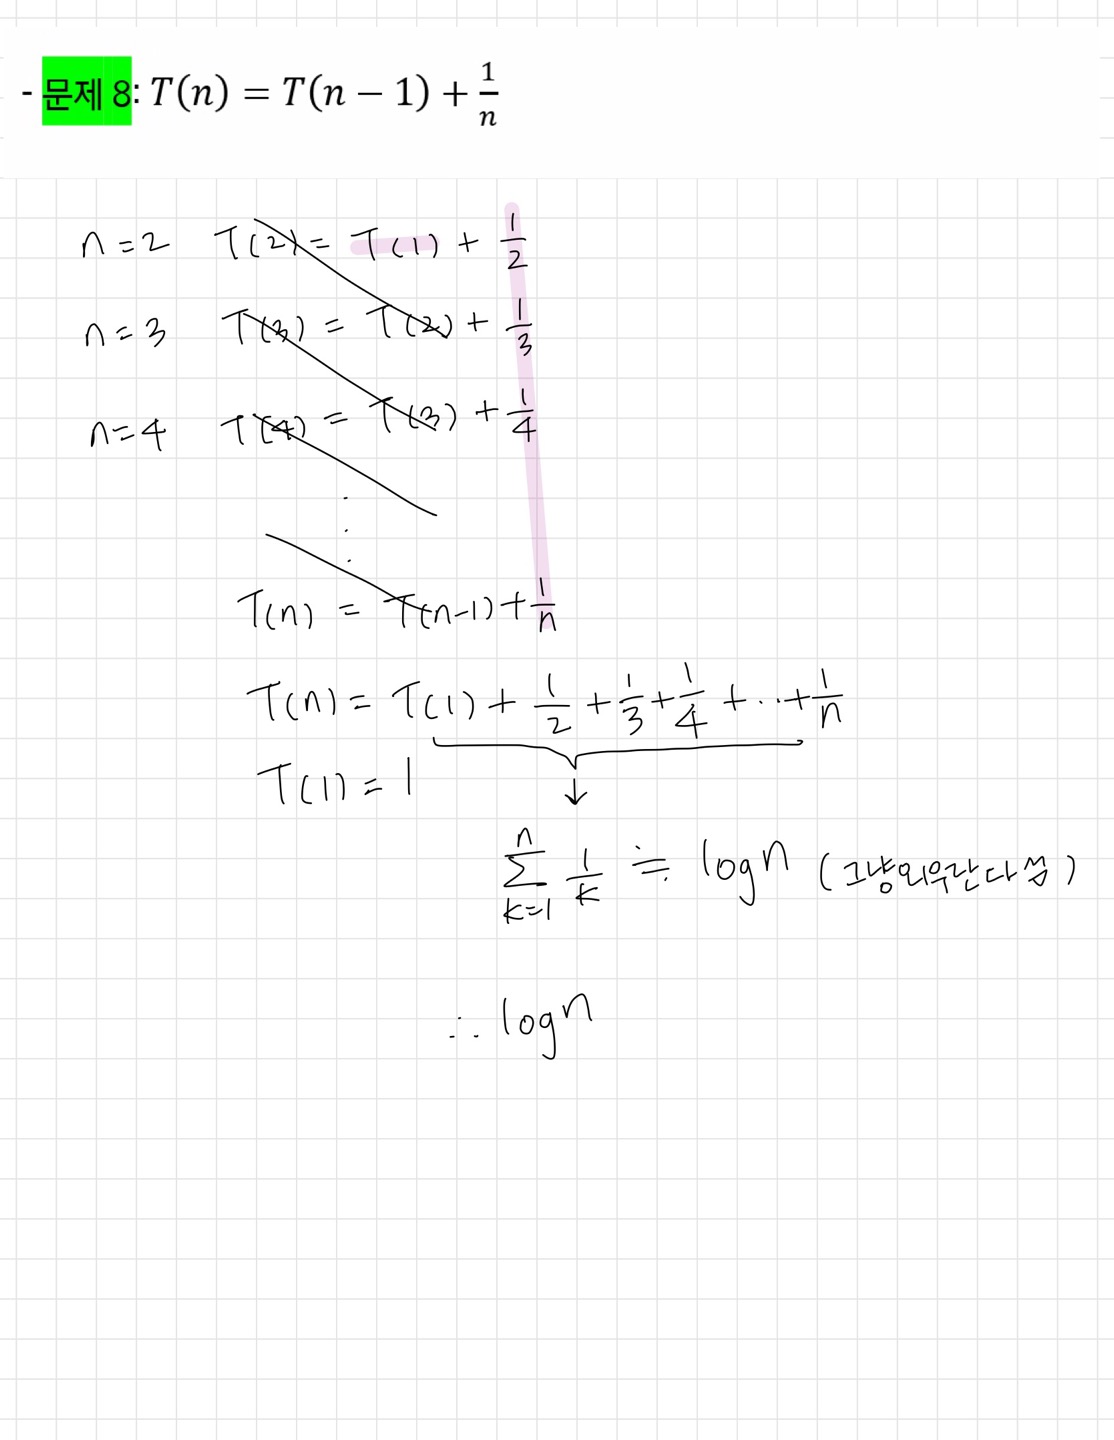 - 문제 8: T(n) = T(n − 1) + 1/n
n=2 T(2) = T(1) + 1/2
n=3 T(3) = T(2) + 1/3
n=4 T(4) = T(3) + 1/4
⋮
T(n) = T(n-1) + 1/n
T(n) = T(1) + 1/2 + 1/3 + 1/4 + ... + 1/n
T(1) = 1
↓
∑_{k=1}^{n} 1/k ≒ logn (그냥외우란다성)
∴ logn